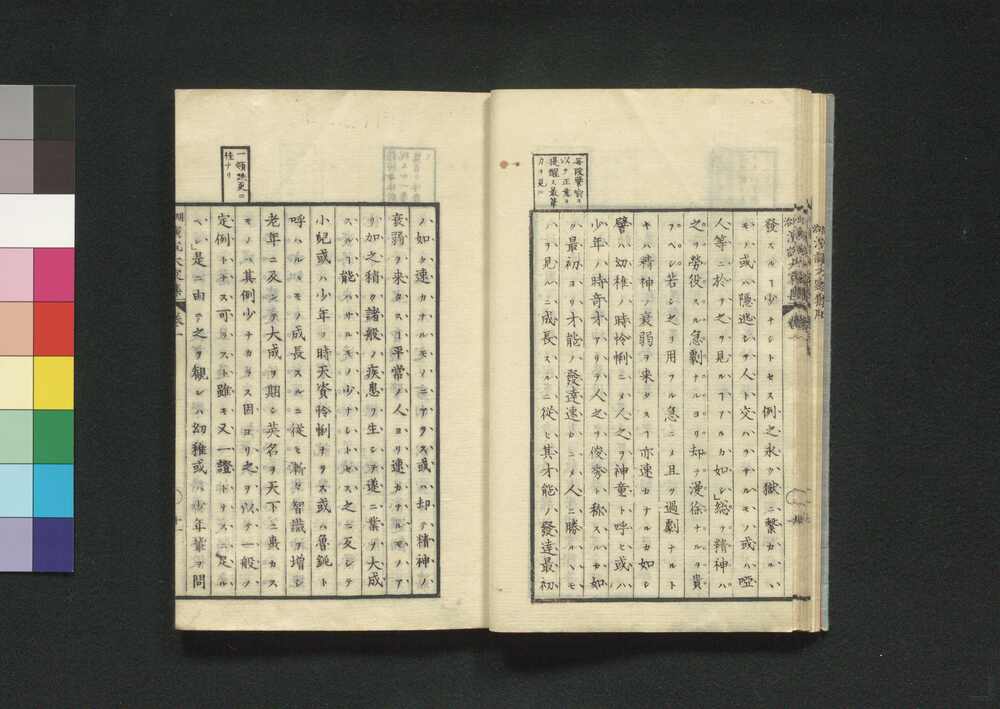 每段警喩ヲ
以テ正意ヲ
提醒ス最筆
力ヲ見ル
發スルヿ少ナシトセス例之永ク獄ニ繋カルヽ
モノ或ハ隠逃シテ人ト交ハラサルモノ或ハ啞
人等ニ於テ之ヲ見ルヿアルカ如シ」総テ精神ハ
之ヲ勞役スル急劇ナルヨリ却テ漫徐ナルヲ貴
フヘシ若シ之ヲ用ヲル急ニメ且ツ過劇ナルト
キハ精神ノ衰弱ヲ来タスヿ亦速カナルカ如シ
譬ハ幼稚ノ時怜悧ニメ人之ヲ神童ト呼ヒ或ハ
少年ノ時奇才アリテ人之ヲ俊秀ト称スルカ如
ク最初ヨリ才能ノ發達速カニメ人ニ勝ルヽモ
ハヲ見ルニ成長スルニ從ヒ其才能ノ發達最初
一頓跌更ニ
佳ナリ
ノ如ク速カナルモノニアラス或ハ却テ精神ノ
衰弱ヲ来タスヿ平常ノ人ヨリ速カナルモノア
リ加之稍ク諸般ノ疾患ヲ生シテ遂ニ業ヲ大成
スルヿ能ハサルモノ少ナシトセス之ニ反シテ
小記或ハ少年ノ時天資怜悧ナラス或ハ魯鈍ト
呼ハルヽモノ成長スルニ従ヒ漸々智識ヲ増シ
老年ニ及ンテ大成ヲ期シ英名ヲ天下ニ輿カス
モノハ其例少ナカラス因ヨリ之ヲ以テ一般ノ
定例トナス可ラスト雖モ又一證トスルニ足ル
ヘシ」是ニ由テ之ヲ観レハ幼稚或ハ少年輩ヲ問
巻一